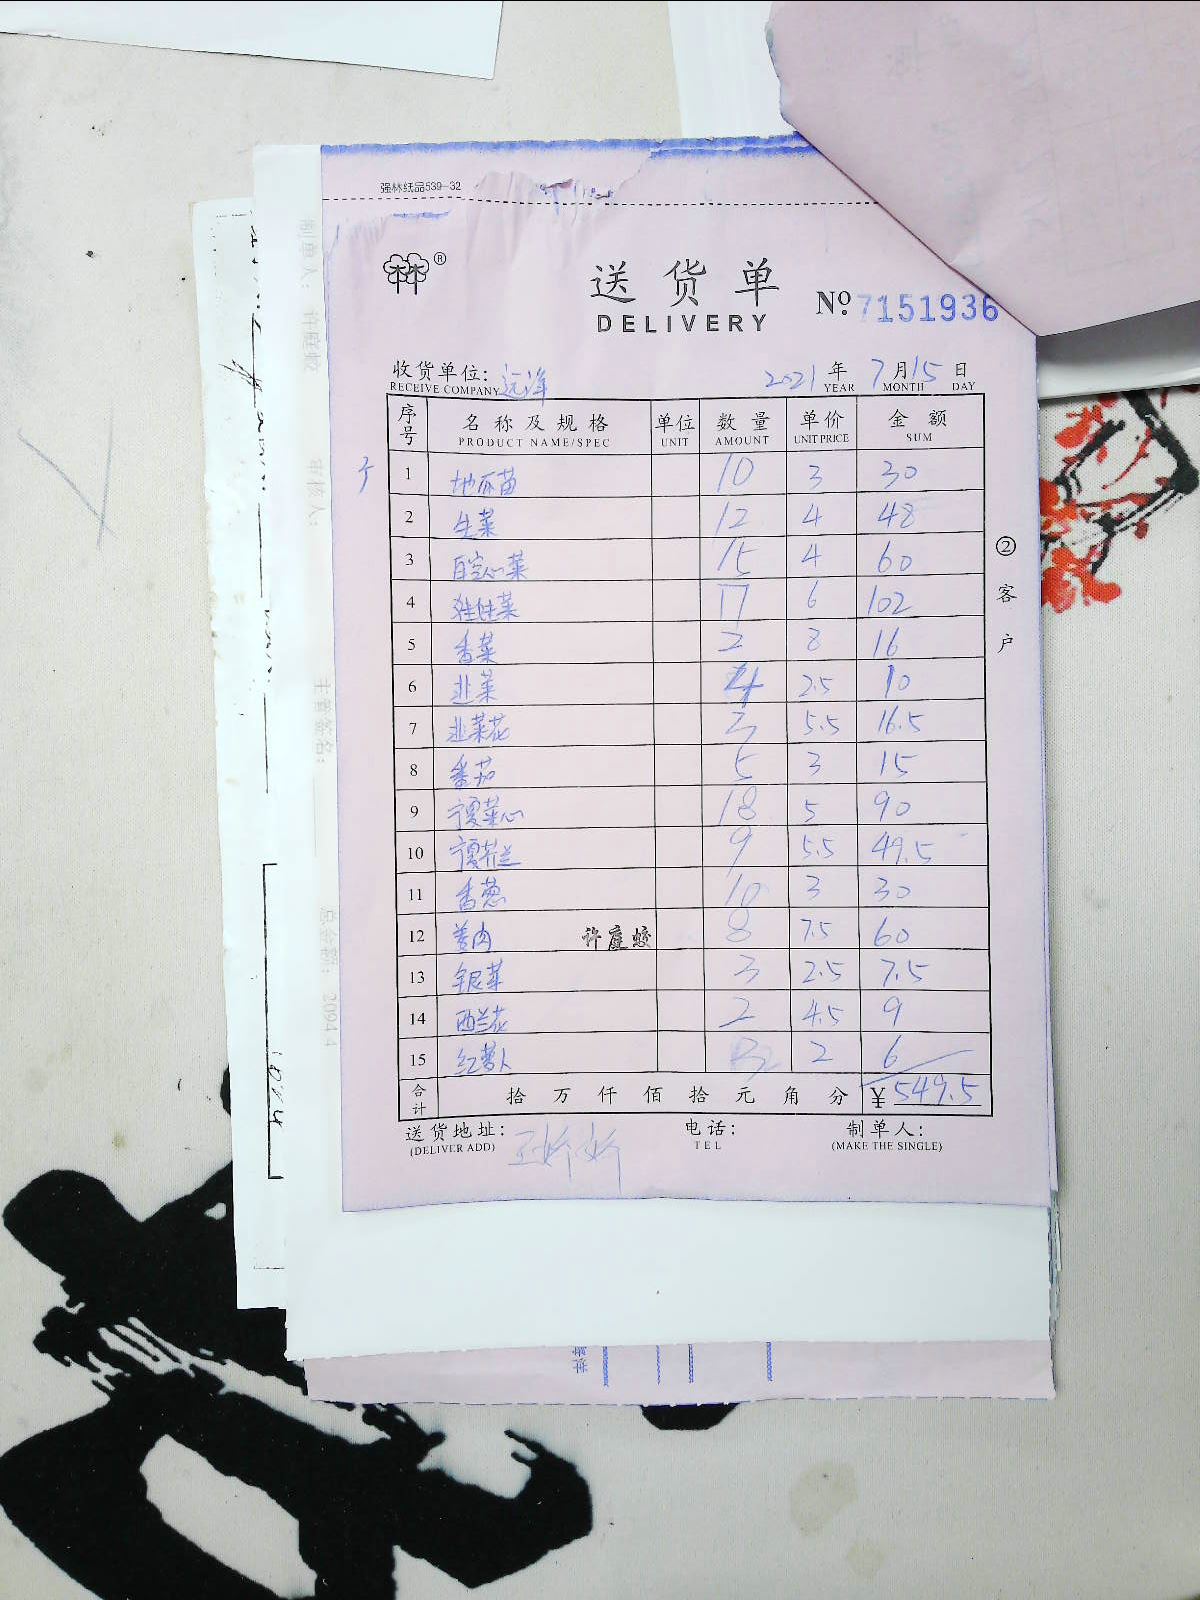 强林纸品539-32
林林®
送货单
DELIVERY
No. 7151936
收货单位: 远洋 2021 年 7 月 15 日
RECEIVE COMPANY YEAR MONTH DAY
序号 名称及规格 单位 数量 单价 金额
PRODUCT NAME/SPEC UNIT AMOUNT UNIT PRICE SUM
1 地瓜苗 10 3 30
2 生菜 12 4 48
3 白空心菜 15 4 60
4 娃娃菜 17 6 102
5 香菜 2 8 16
6 韭菜 4 2.5 10
7 韭菜花 3 5.5 16.5
8 番茄 5 3 15
9 菜心 18 5 90
10 芥兰 9 5.5 49.5
11 香葱 10 3 30
12 姜肉 许庭蛟 8 7.5 60
13 银菜 3 2.5 7.5
14 西兰花 2 4.5 9
15 红萝卜 3 2 6
合计 拾 万 仟 佰 拾 元 角 分 ¥ 549.5
送货地址: 电话: 制单人:
(DELIVER ADD) TEL (MAKE THE SINGLE)
②客户